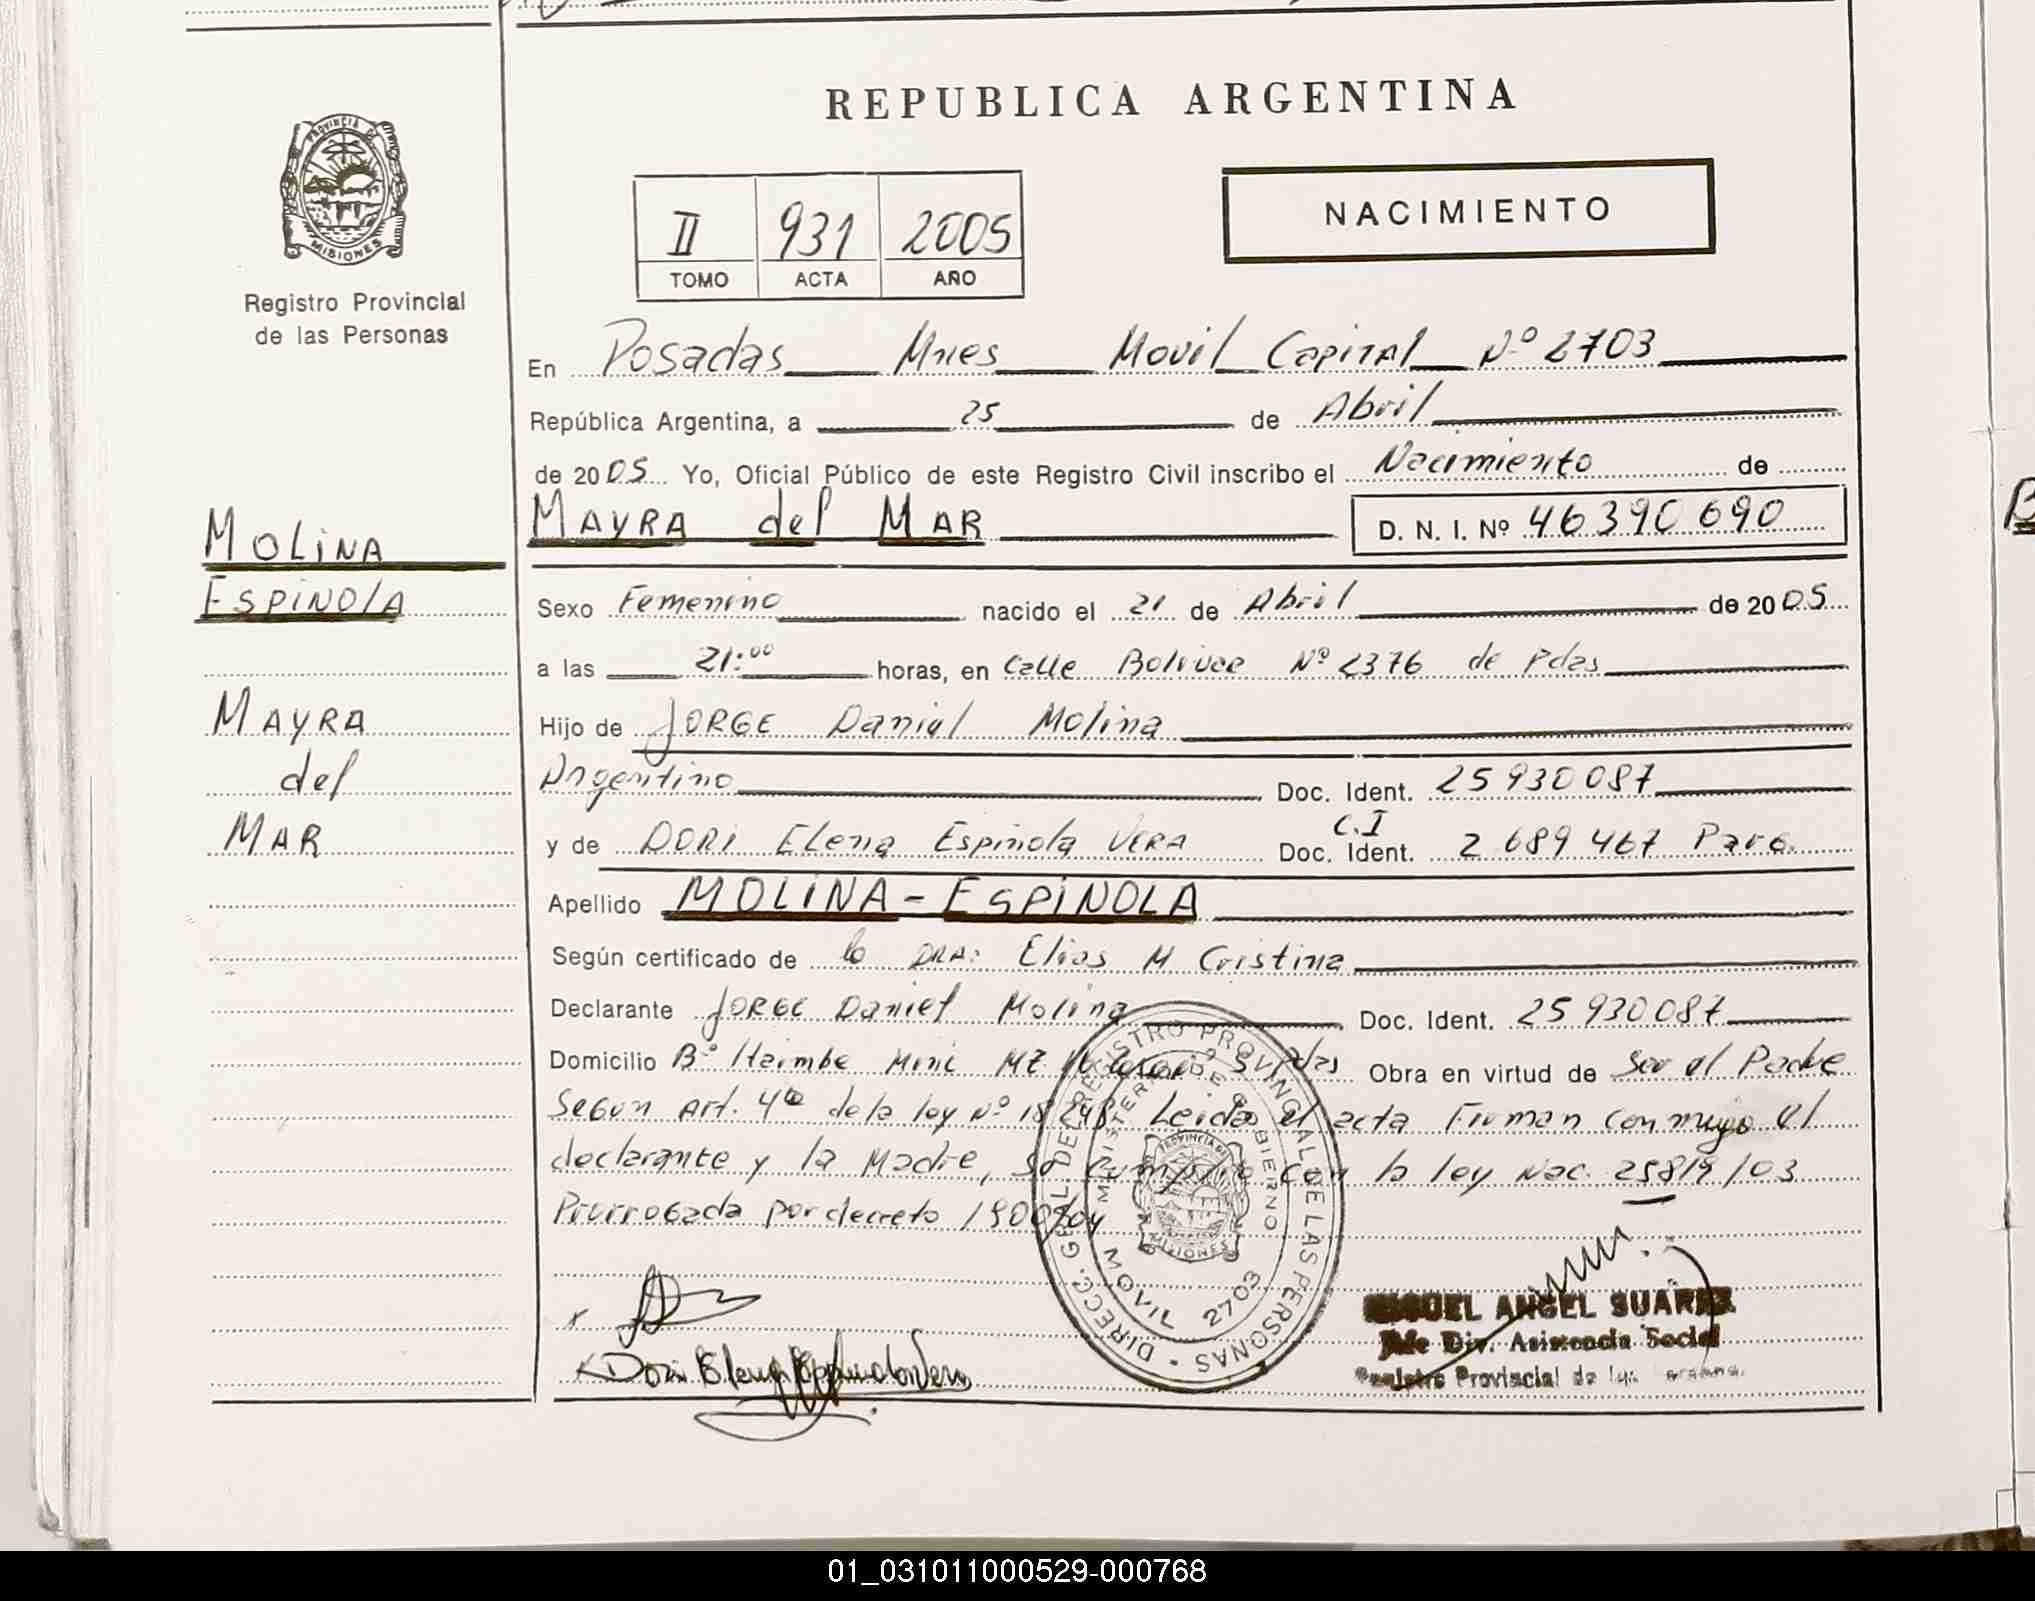 REPUBLICA ARGENTINA
PROVINCIA DE
MISIONES
Registro Provincial
de las Personas
II 931 2005
TOMO ACTA AÑO
NACIMIENTO
En Posadas Mnes Movil Capital Nº 2703
República Argentina, a 25 de Abril
de 2005 Yo, Oficial Público de este Registro Civil inscribo el Nacimiento de
MAYRA del MAR D. N. I. Nº 46390690
MOLINA
ESPINOLA
MAYRA
del
MAR
Sexo Femenino nacido el 21 de Abril de 2005
a las 21:00 horas, en Calle Bolivar Nº 2376 de Pdas
Hijo de JORGE Daniel Molina
Argentino Doc. Ident. 25930087
C.I
y de DORI Elena Espinola VERA Doc. Ident. 2 689 467 Para.
Apellido MOLINA - ESPINOLA
Según certificado de la DRA: Elias M Cristina
Declarante JORGE Daniel Molina Doc. Ident. 25930087
Domicilio Bº Itaimbe Mini MZ Pdas Obra en virtud de Ser el Padre
Segun Art. 4º de la ley Nº 18248 Leida el acta Firman conmigo el
declarante y la Madre, Se cumplio con la ley Nac. 25819/03
Prorrogada por decreto 1900/04
DIRECC. GRAL DEL REGISTRO PROVINCIAL DE LAS PERSONAS
MINISTERIO DE GOBIERNO
PROVINCIA DE
MISIONES
MOVIL 2703
Dori Elena Espinola Vera
MIGUEL ANGEL SUAREZ
Jefe Div. Asistencia Social
Registro Provincial de las Personas
01_031011000529-000768